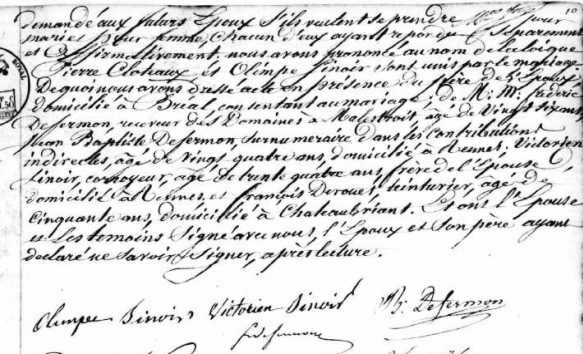 demandé aux futurs Epoux s'ils veulent se prendre pour
mari et pour femme, Chacun d'eux ayant répondu Séparément
et Affirmativement. nous avons prononcé au nom de la loi que
Pierre Cloteaux et Olimpe Sinoir sont unis par le mariage.
De quoi nous avons dressé acte en présence du père de l'Epoux
domicilié à Bréal, consentant au mariage, de M. M. frederic
Defermon, receveur des Domaines à Malestroit, âgé de Vingt six ans,
Jean Baptiste Defermon, surnumeraire dans les contributions
indirectes, âgé de vingt quatre ans, domicilié à Rennes, Victorien
Sinoir, corroyeur, âgé de trente quatre ans, frère de l'Epouse
domicilié à Rennes, et françois Deroué, teinturier, âgé de
Cinquante ans, domicilié à Chateaubriant. Et ont l'Epouse
et Les temoins Signé avec nous, l'Epoux et Son père ayant
declaré ne Savoir Signer, après lecture.
Olimpe Sinoir Victorien Sinoir Defermon